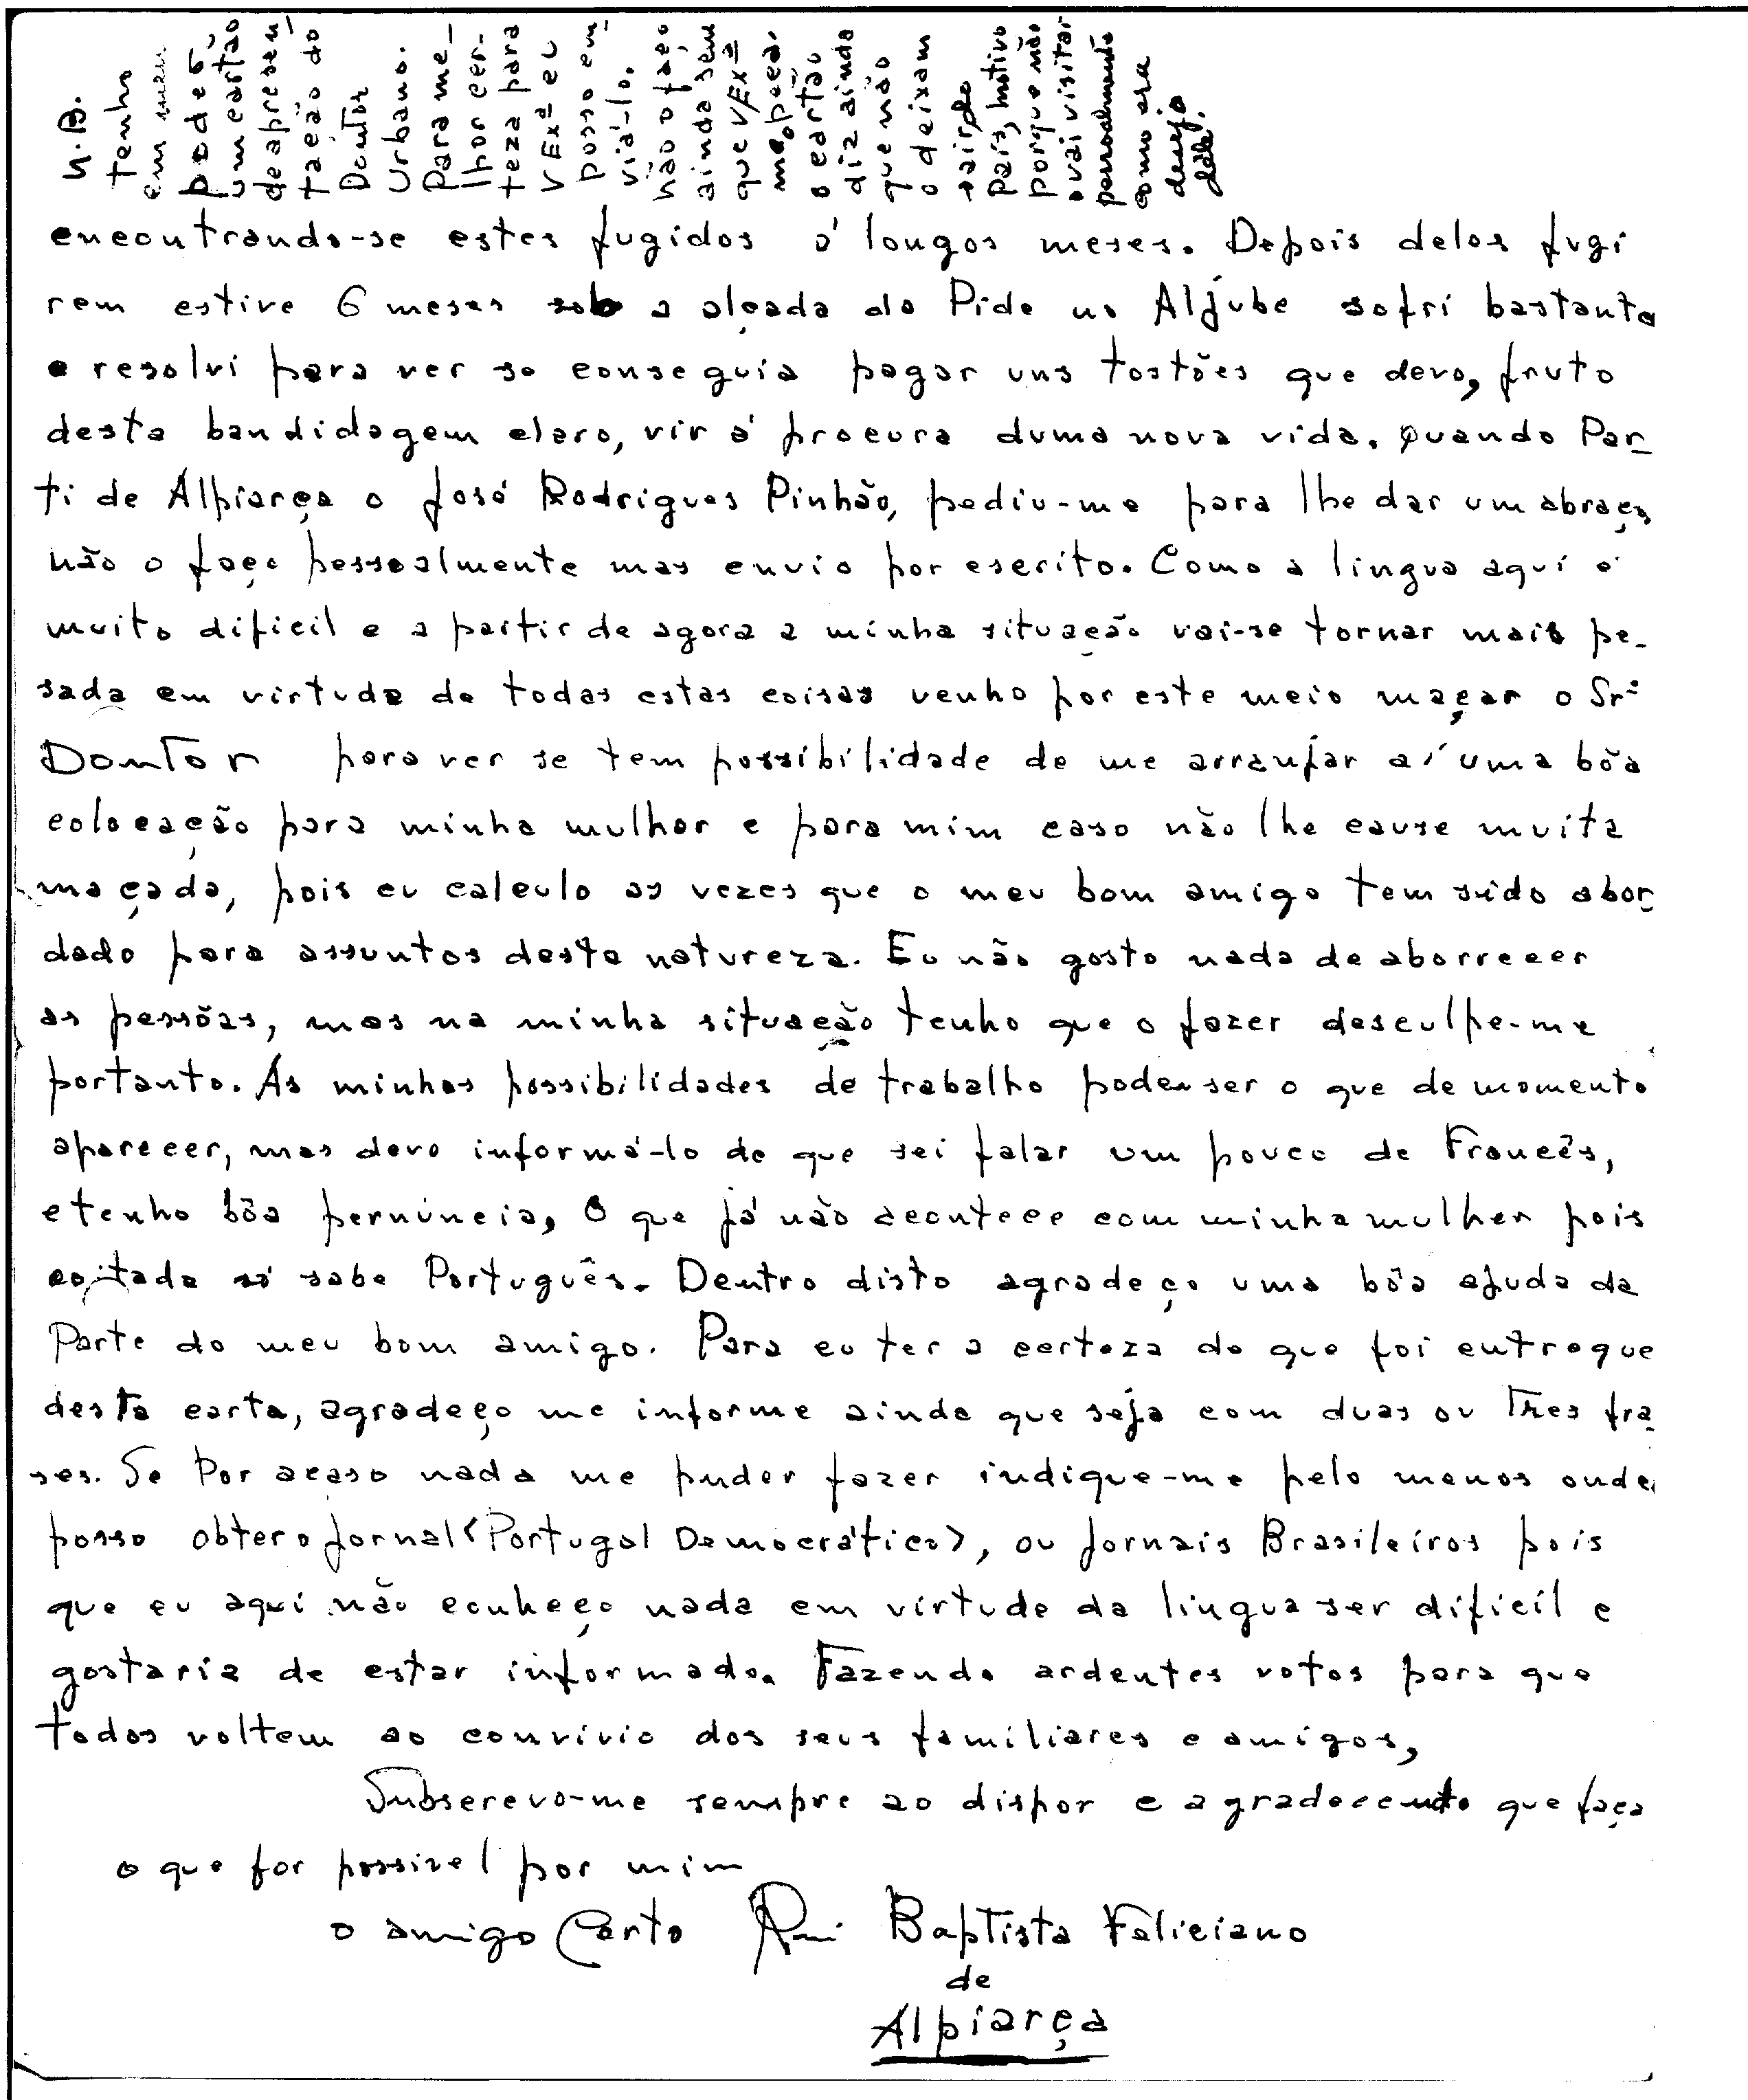 N.B.
Tenho
em meu
podeR
um cartão
de apresen
tação do
Doutor
Urbano.
Para me_
lhor cer-
teza para
V Exª eu
posso en_
viá-lo.
não o faço
ainda sem
que V/Exª
me peça.
o cartão
diz ainda
que não
o deixam
sair do
País, motivo
porque não
o vai visitar
pessoalmente
como era
desejo
dele.
encontrando-se estes fugidos á longos meses. Depois deles fugi
rem estive 6 meses sob a alçada da Pide no Aljube sofri bastante
e resolvi para ver se conseguia pagar uns tostões que devo, fruto
desta bandidagem claro, vir á procura duma nova vida. Quando Par_
ti de Alpiarça o José Rodrigues Pinhão, pediu-me para lhe dar um abraço
não o faço pessoalmente mas envio por escrito. Como a lingua aqui é
muito dificil e a partir de agora a minha situação vai-se tornar mais pe_
sada em virtude de todas estas coisas venho por este meio maçar o Srº
Doutor para ver se tem possibilidade de me arranjar aí uma bôa
colocação para minha mulher e para mim caso não lhe cause muita
maçada, pois eu calculo as vezes que o meu bom amigo tem sido abor_
dado para assuntos desta natureza. Eu não gosto nada de aborrecer
as pessôas, mas na minha situação tenho que o fazer desculpe-me
portanto. As minhas possibilidades de trabalho podem ser o que de momento
aparecer, mas devo informá-lo de que sei falar um pouco de Francês,
e tenho bôa pernúncia, O que já não acontece com minha mulher pois
coitada só sabe Português. Dentro disto agradeço uma bôa ajuda da
Parte do meu bom amigo. Para eu ter a certeza de que foi entregue
desta carta, agradeço me informe ainda que seja com duas ou Tres fra_
ses. Se Por acaso nada me puder fazer indique-me pelo menos onde
posso obter o jornal <Portugal Democrático>, ou jornais Brasileiros pois
que eu aqui não conheço nada em virtude da lingua ser dificil e
gostaria de estar informado. Fazendo ardentes votos para que
todos voltem ao convivio dos seus familiares e amigos,
Subscrevo-me sempre ao dispor e agradecendo que faça
o que for possivel por mim
o amigo Certo Rui Baptista Feliciano
de
Alpiarça